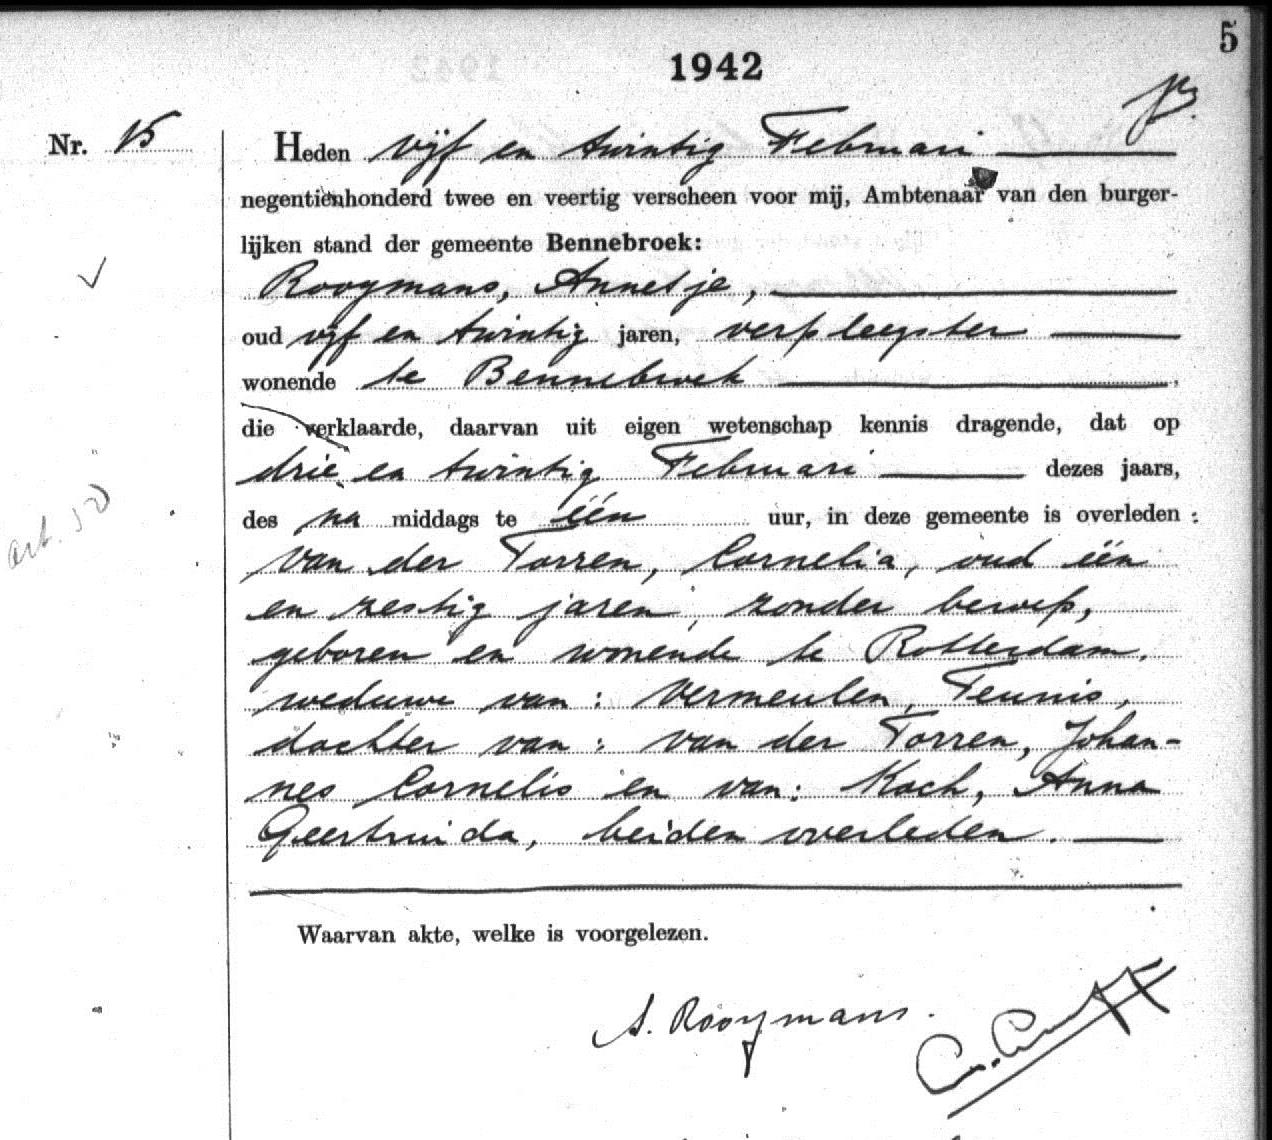 5
1942
Nr. 15
Heden vijf en twintig Februari
negentienhonderd twee en veertig verscheen voor mij, Ambtenaar van den burger-
lijken stand der gemeente Bennebroek:
Rooymans, Annetje,
oud vijf en twintig jaren, verpleegster
wonende te Bennebroek
die verklaarde, daarvan uit eigen wetenschap kennis dragende, dat op
drie en twintig Februari dezes jaars,
des na middags te één uur, in deze gemeente is overleden:
van der Torren, Cornelia, oud één
en zestig jaren, zonder beroep,
geboren en wonende te Rotterdam,
weduwe van: Vermeulen, Teunis,
dochter van: van der Torren, Johan-
nes Cornelis en van: Koch, Anna
Geertruida, beiden overleden.
art. 50
Waarvan akte, welke is voorgelezen.
A. Rooymans.